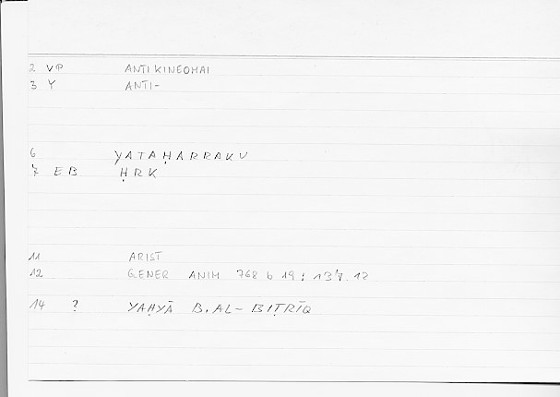 2 VP ANTIKINEOMAI
3 Y ANTI-
6 YATAḤARRAKU
7 EB ḤRK
11 ARIST
12 GENER ANIM 768 b 19 : 137.12
14 ? YAḤYĀ B. AL-BIṬRĪQ